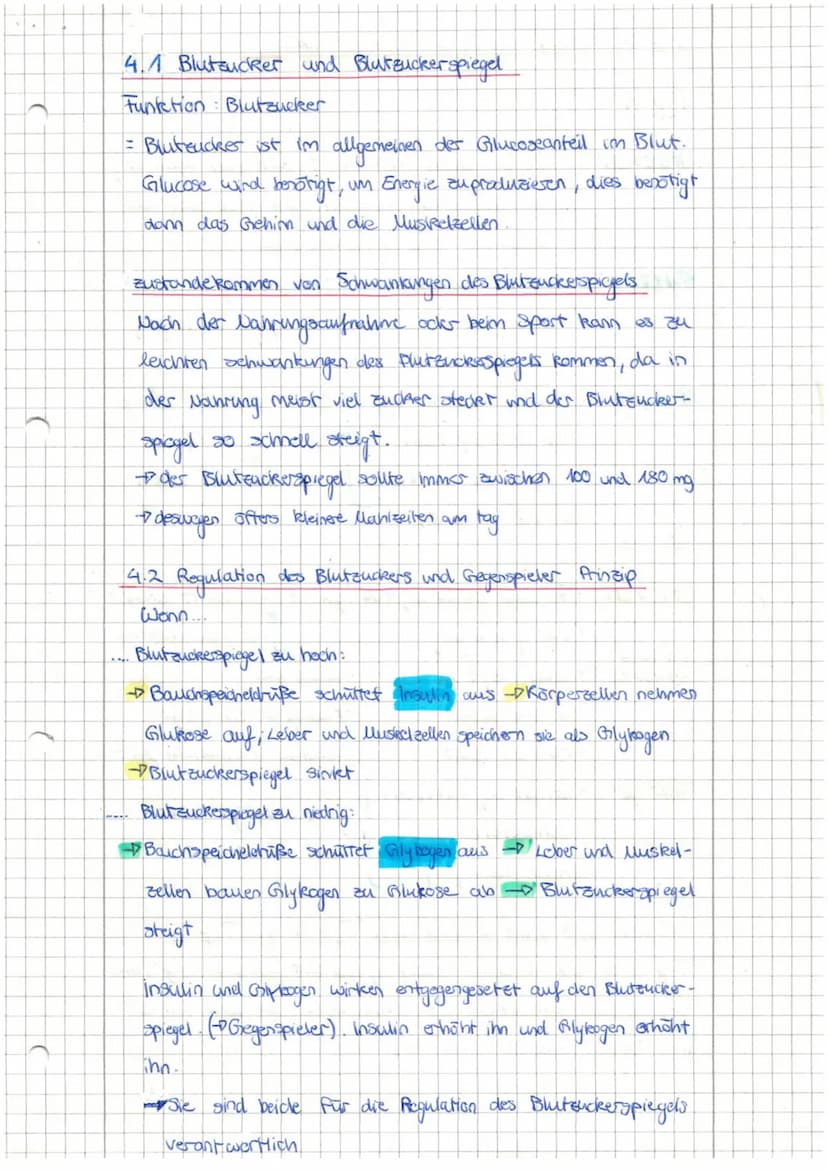 4.1 Blutzucker und Blutzuckerspiegel
Funktion : Blutzucker
= Blutzucker ist im allgemeinen der Glucoseanteil im Blut.
Glucose wird benötigt, um Energie zu produzieren, dies benötigt
dann das Gehirn und die Muskelzellen.
zustandekommen von Schwankungen des Blutzuckerspiegels
Nach der Nahrungsaufnahme oder beim Sport kann es zu
leichten schwankungen des Blutzuckerspiegels kommen, da in
der Nahrung meist viel zucker steckt und der Blutzucker-
spiegel so schnell steigt.
→ der Blutzuckerspiegel sollte immer zwischen 100 und 180 mg
→ deswegen öfters kleinere Mahlzeiten am tag
4.2 Regulation des Blutzuckers und Gegenspieler Prinzip
Wenn...
.... Blutzuckerspiegel zu hoch:
→ Bauchspeicheldrüße schüttet Insulin aus → Körperzellen nehmen
Glukose auf; Leber und Muskelzellen speichern sie als Glykogen
→ Blutzuckerspiegel sinket
.... Blutzuckerspiegel zu niedrig:
→ Bauchspeicheldrüße schüttet Glykogen aus → Leber und Muskel-
zellen bauen Glykogen zu Glukose ab → Blutzuckerspiegel
steigt
insulin und Glykogen wirken entgegengesetzt auf den Blutzucker-
spiegel. (→ Gegenspieler). Insulin erhöht ihn und Glykogen erhöht
ihn.
→ Sie sind beide für die Regulation des Blutzuckerspiegels
verantwortlich